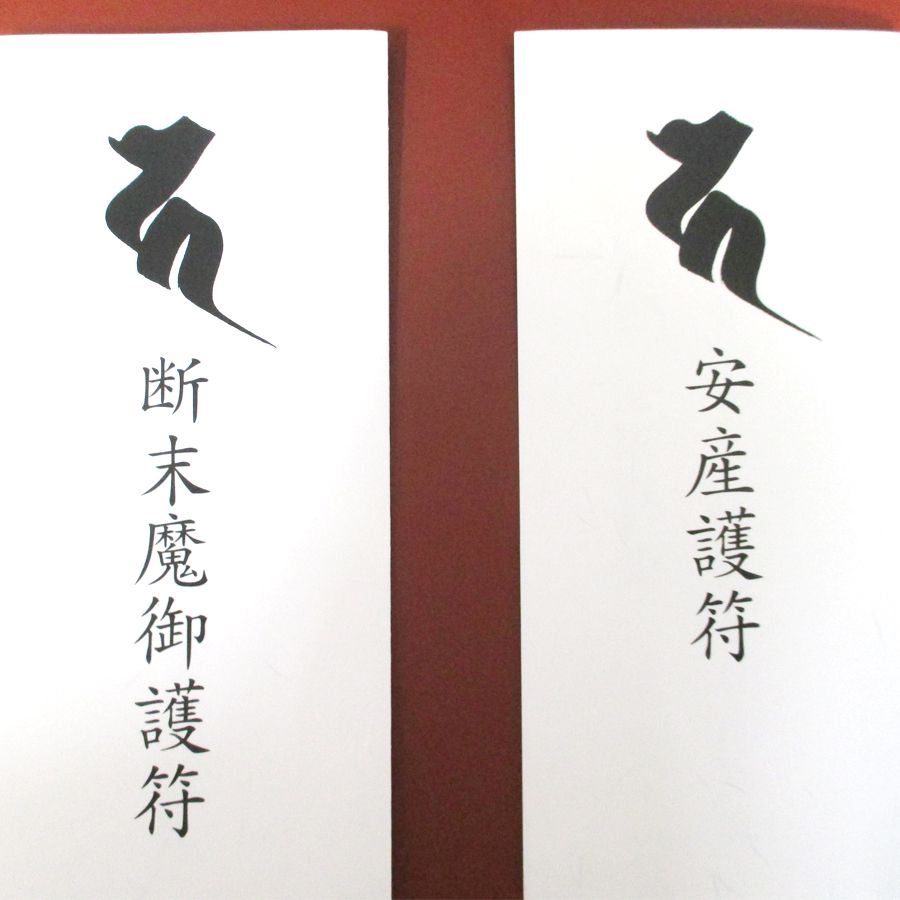 安産護符
断末魔御護符